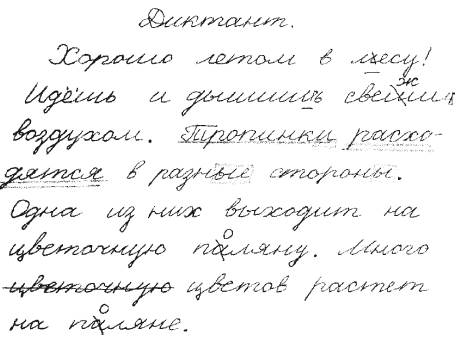 Диктант.
Хорошо летом в лесу!
Идёшь и дышишь свежим
воздухом. Тропинки расхо-
дятся в разные стороны.
Одна из них выходит на
цветочную поляну. Много
цветочную цветов растет
на поляне.